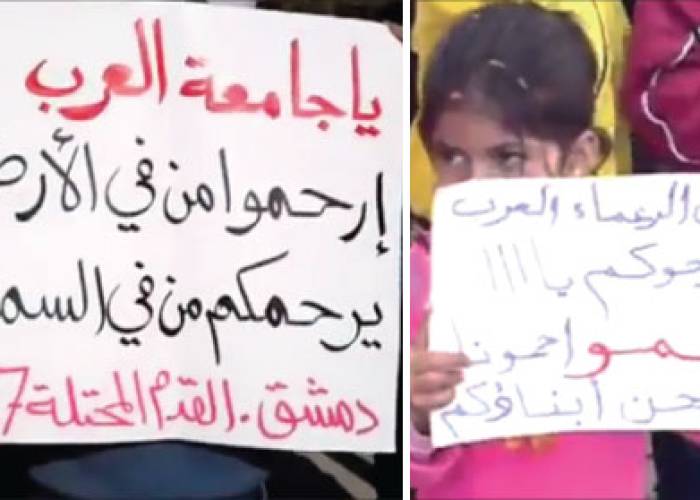 ياجامعة العرب
إرحموا من في الأرض
يرحمكم من في السما
دمشق. القدم المحتلة 7
الزعماء العرب
يا||||
احمونا
أبناؤكم